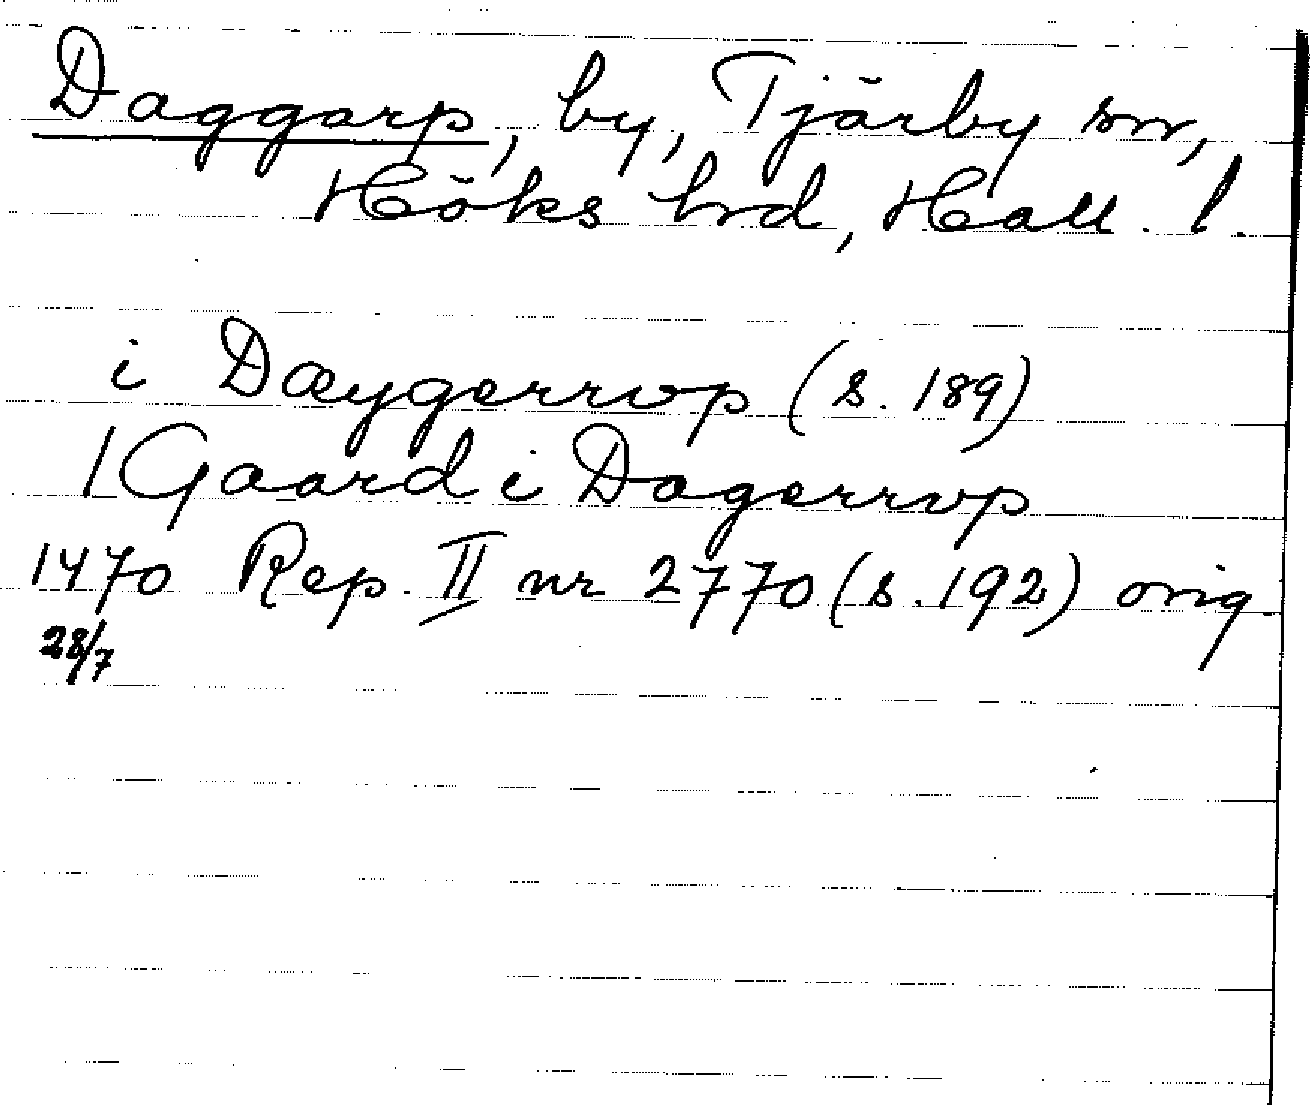 Daggarp, by, Tjärby sn,
Höks hrd, Hall. l.
i Dæygerrop (s. 189)
1 Gaard i Dagerrop
1470 Rep. II nr 2770 (s. 192) orig
28/7